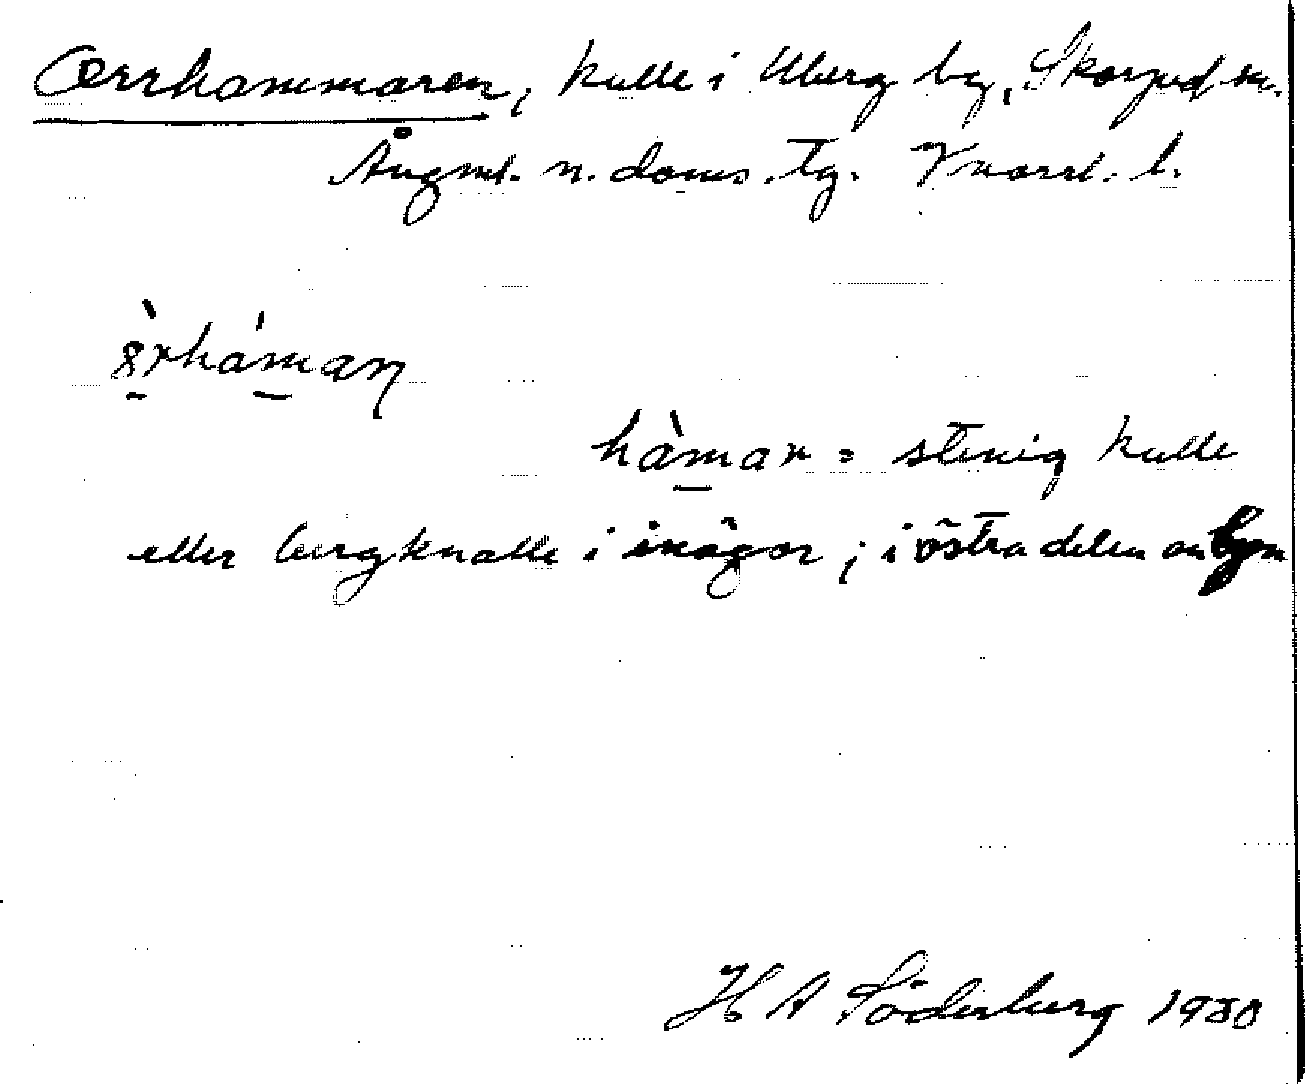 Orrhammaren, kulle i Uberg by, Skorped sn.
Ångml. n. doms. tg. Vnorrl. l.
hàmar = stenig kulle
eller bergknalle i inägor; i östra delen av byn
H A Söderberg 1930